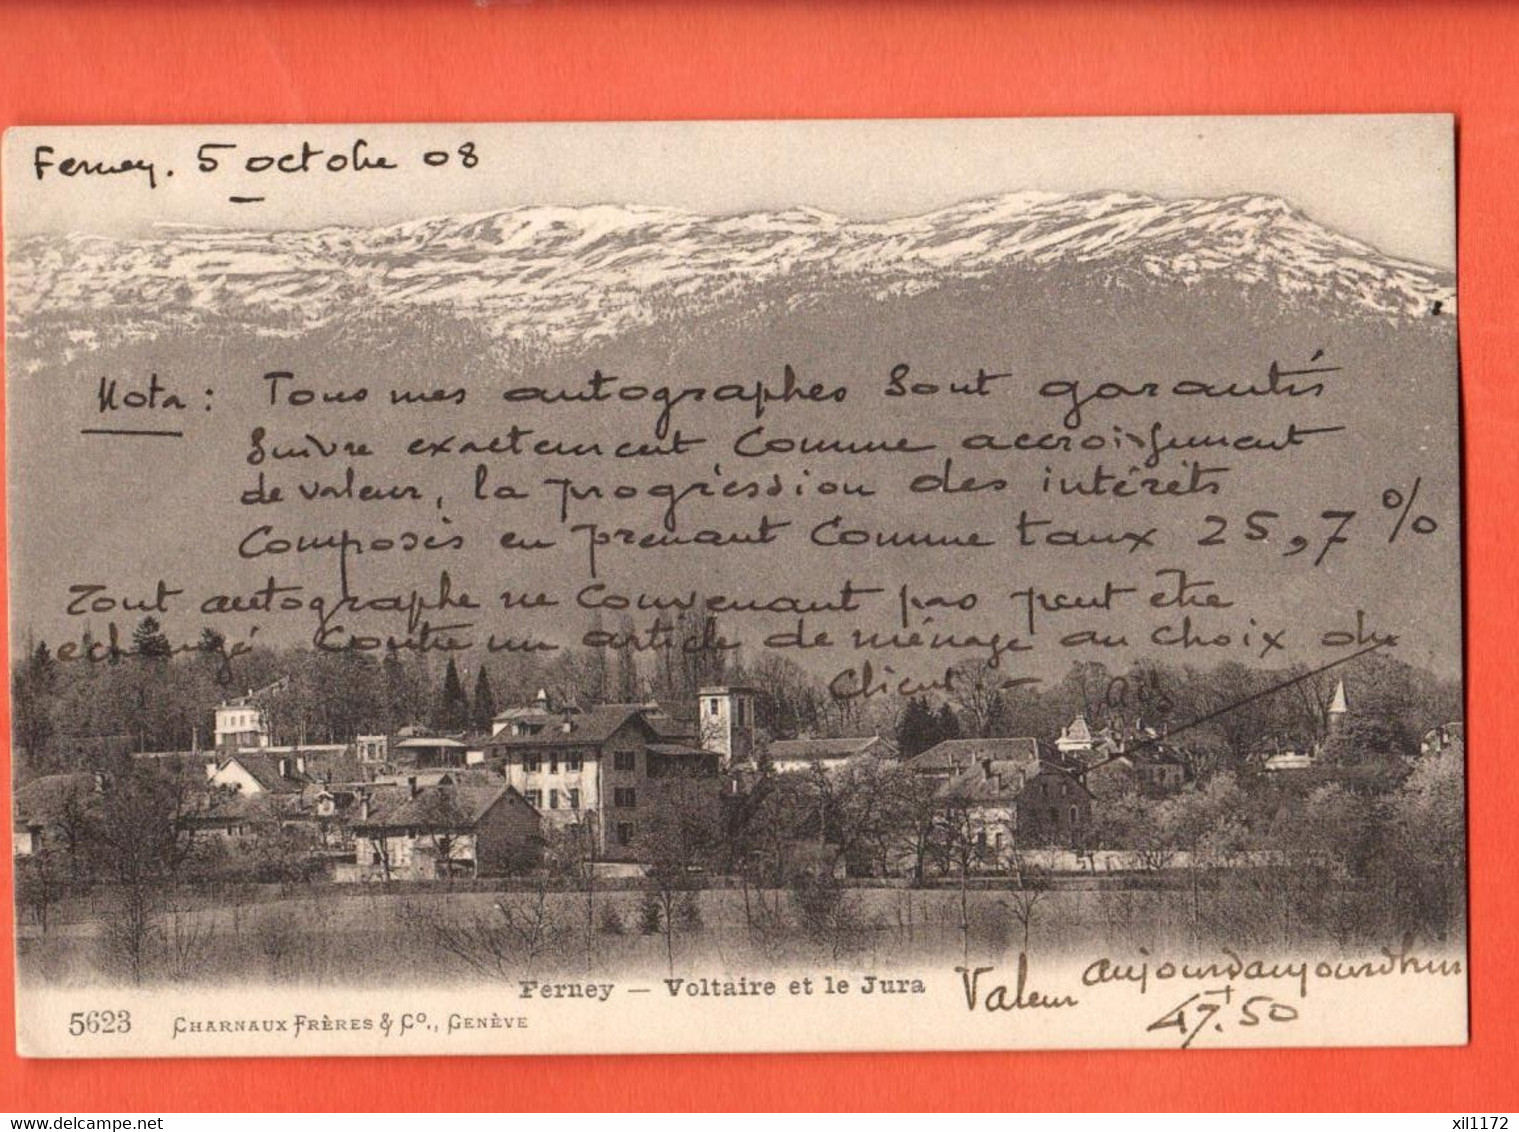 Ferney. 5 octobre 08
Nota : Tous mes autographes sont garantis
suivre exactement comme accroissement
de valeur, la progression des intérêts
composés en prenant comme taux 25,7 %
Tout autographe ne convenant pas peut être
echangé contre un article de ménage au choix du
client. —
Ferney — Voltaire et le Jura
Valeur aujourd'aujourdhui
47.50
5623 CHARNAUX FRÈRES & Cº., GENÈVE
delcampe.net
xil1172